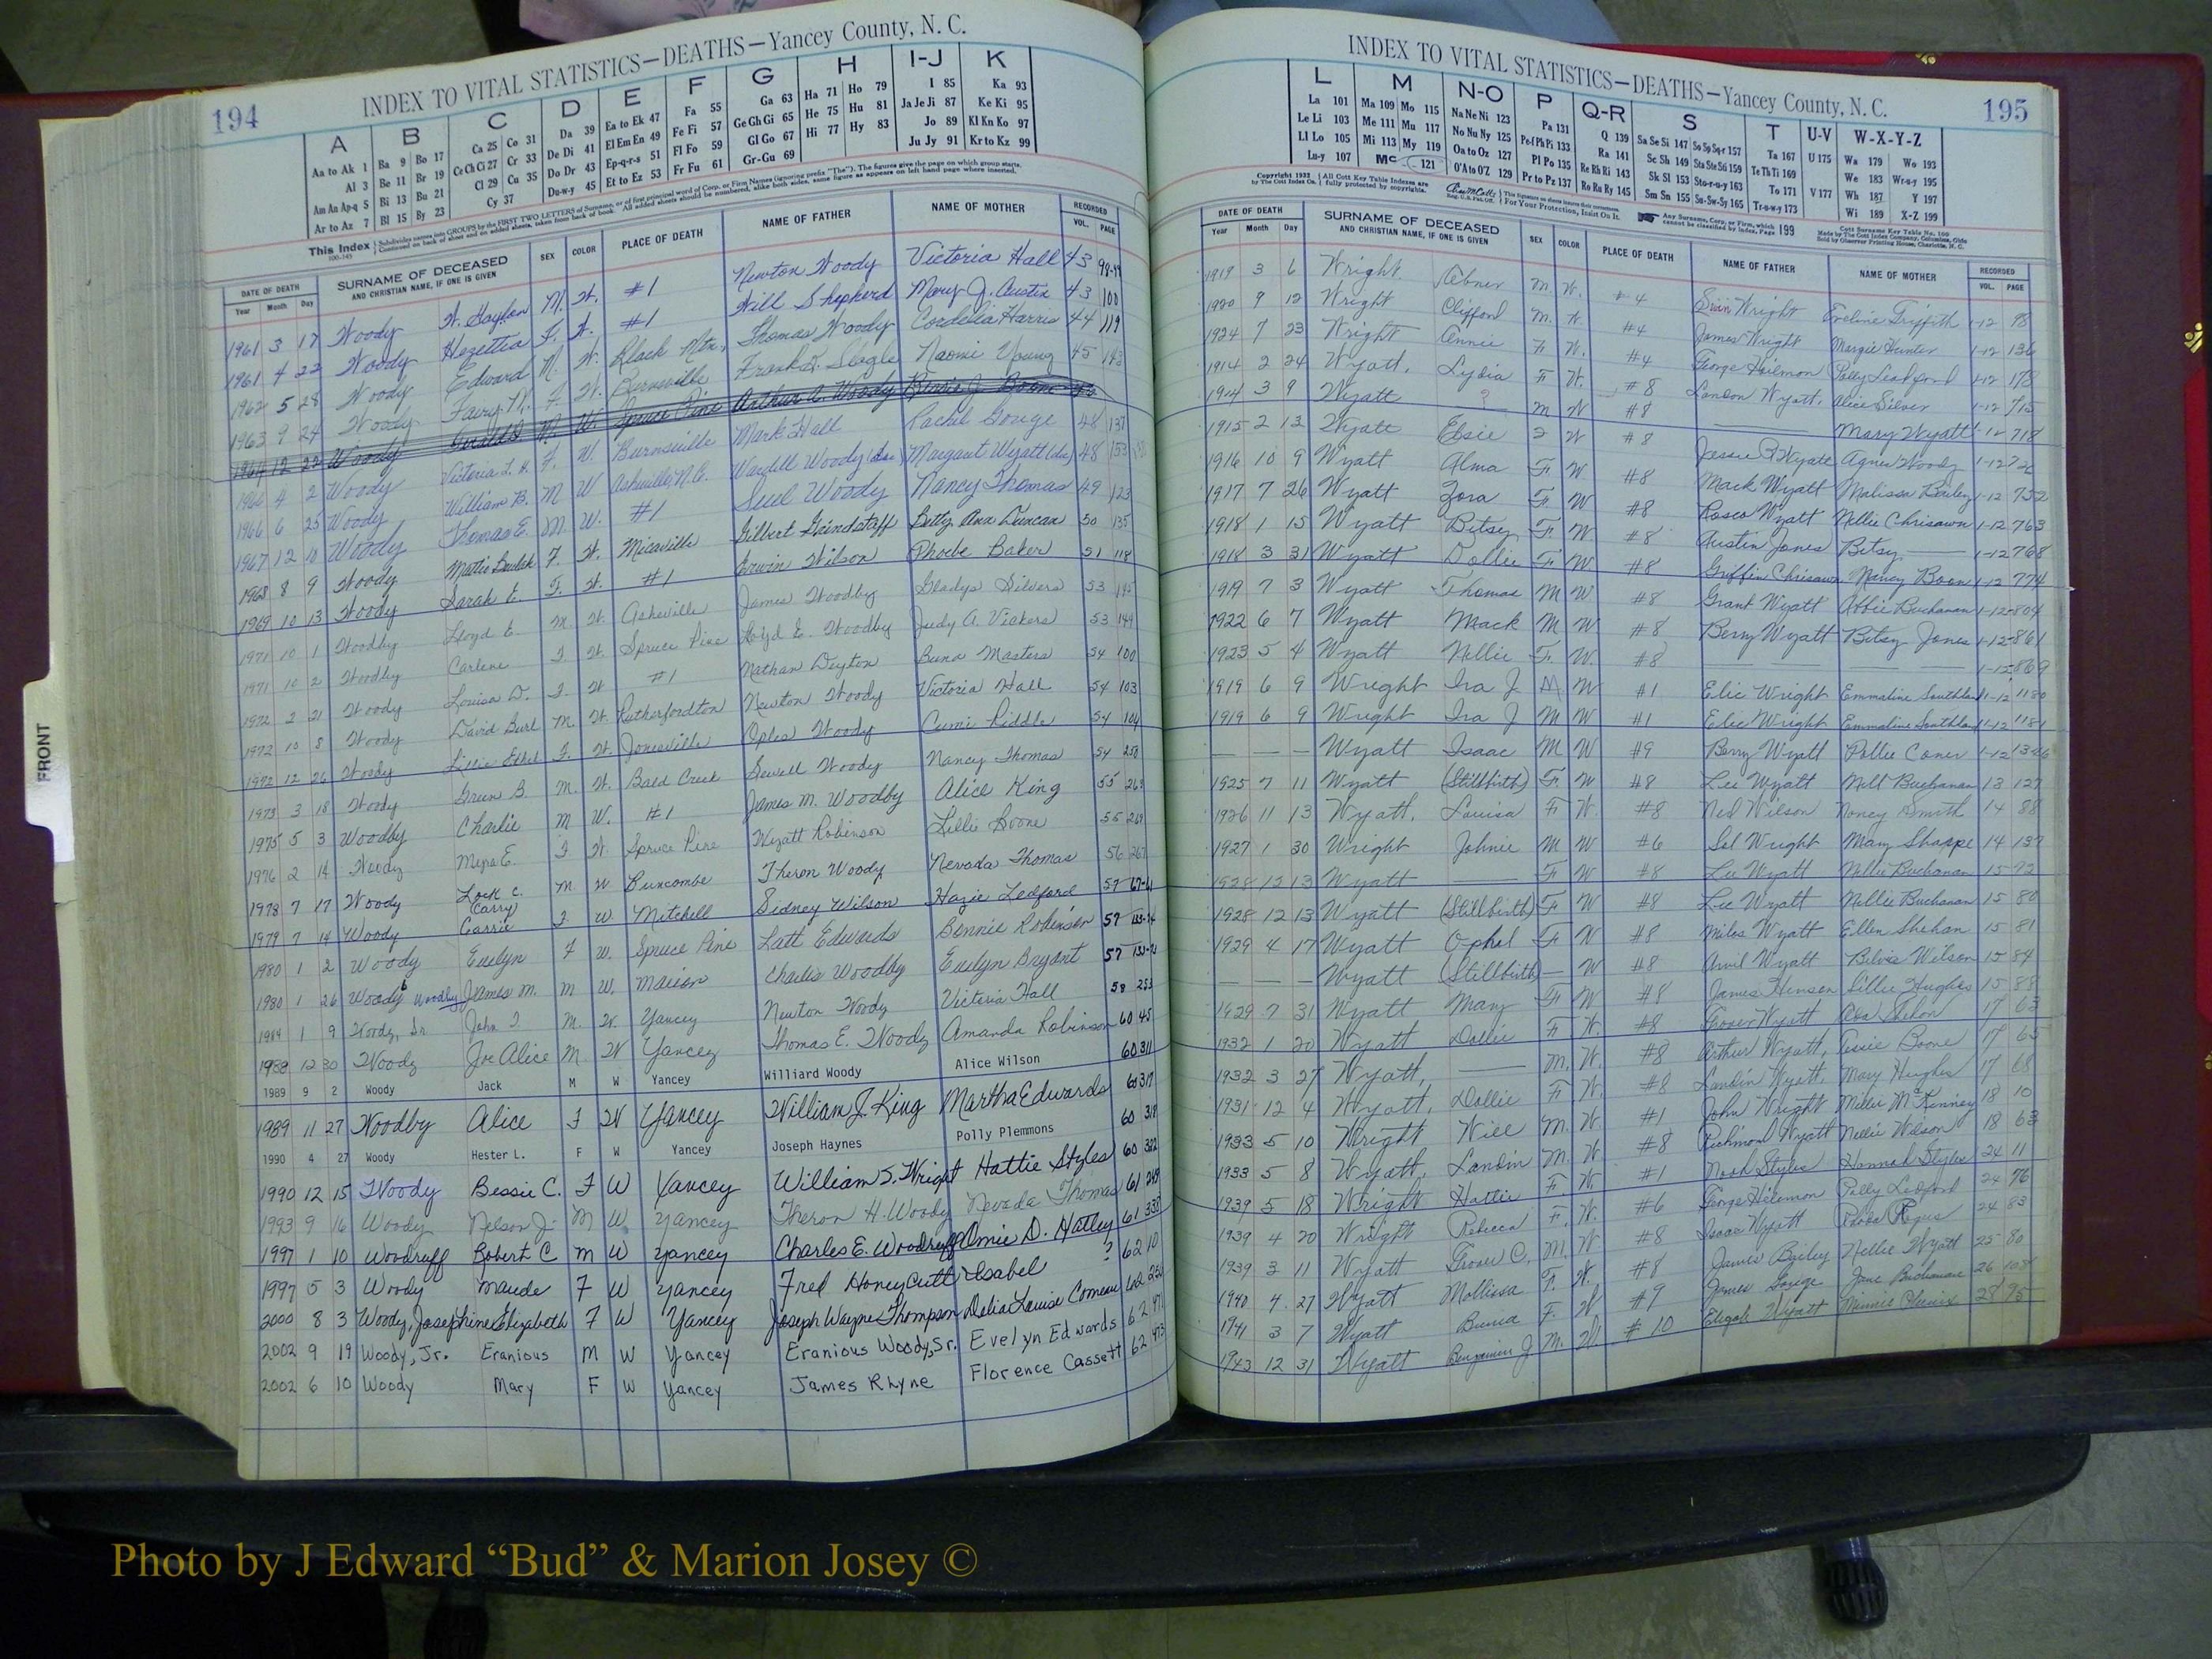 194
INDEX TO VITAL STATISTICS—DEATHS—Yancey County, N. C.
A B C D E F G H I-J K
Aa to Ak 1 Ba 9 Bo 17 Ca 25 Co 31 Da 39 Ea to Ek 47 Fa 55 Ga 63 Ha 71 Ho 79 I 85 Ka 93
Al 3 Be 11 Br 19 Ce Ch Ci 27 Cr 33 De Di 41 El Em En 49 Fe Fi 57 Ge Gh Gi 65 He 75 Hu 81 Ja Je Ji 87 Ke Ki 95
Am An Ap-q 5 Bi 13 Bu 21 Cl 29 Cu 35 Do Dr 43 Ep-q-r-s 51 Fl Fo 59 Gl Go 67 Hi 77 Hy 83 Jo 89 Kl Kn Ko 97
Ar to Az 7 Bl 15 By 23 Cy 37 Du-w-y 45 Et to Ez 53 Fr Fu 61 Gr-Gu 69 Ju Jy 91 Kr to Kz 99
This Index
DATE OF DEATH SURNAME OF DECEASED SEX COLOR PLACE OF DEATH NAME OF FATHER NAME OF MOTHER RECORDED
Year Month Day AND CHRISTIAN NAME, IF ONE IS GIVEN VOL. PAGE
1961 3 17 Woody M. W. #1 Newton Woody Victoria Hall 43
1961 4 22 Woody Hezettia F. W. #1 Will Shepherd Mary J. Austin 43 100
1962 5 28 Woody Edward M. W. Black Mtn. Thomas Woody Cordelia Harris 44 119
1963 9 24 Woody Fairy M. F. W. Burnsville Frank D. Slagle Naomi Young 45 143
1964 12 22 Woody M. W. Spruce Pine Arthur A. Woody Bessie J. Boone
1966 4 2 Woody Victoria L. H. F. W. Burnsville Mark Hall Rachel Gouge 48 137
1966 6 25 Woody William B. M W Asheville, N.C. Wardell Woody Margaret Wyatt 48 153
1967 12 10 Woody Thomas E. M. W. #1 Suel Woody Nancy Thomas 49 123
1968 8 9 Woody Mattie Beulah F. W. Micaville Gilbert Grindstaff Betty Ann Duncan 50 135
1969 10 13 Woody Sarah E. F. W. #1 Erwin Wilson Phoebe Baker 51 118
1971 10 1 Woodby Lloyd E. M W. Asheville James Woodby Gladys Silvers 53 145
1971 10 2 Woodby Carlene F. W. Spruce Pine Lloyd E. Woodby Judy A. Vickers 53 144
1972 2 21 Woody Louisa D. F. W #1 Nathan Deyton Buna Masters 54 100
1972 10 8 Woody David Burl M. W. Rutherfordton Newton Woody Victoria Hall 54 103
1972 12 26 Woody Lillie Ethel F. W. Jonesville Oples Woody Cumi Riddle 54 104
1973 3 18 Woody Green B. M. W. Bald Creek Sewell Woody Nancy Thomas 54 258
1975 5 3 Woodby Charlie M W. #1 James M. Woodby Alice King 55 263
1976 2 14 Woody F W. Spruce Pine Wyatt Robinson Lillie Boone 55 269
1978 7 17 Woody Lock C. M. W Buncombe Theron Woody Nevada Thomas 56 267
1979 7 14 Woody (Carry) Carrie F W Mitchell Sidney Wilson Hazie Ledford 57
1980 1 2 Woody Evelyn F W. Spruce Pine Latt Edwards Bonnie Robinson 57
1980 1 26 Woody Woodby James M. M W. Marion Charlie Woodby Evelyn Bryant 57
1984 1 9 Woody, Sr. John T. M. W. Yancey Newton Woody Victoria Hall 58 253
1988 12 30 Woody Joe Alice M W Yancey Thomas E. Woody Amanda Robinson 60 45
1989 9 2 Woody Jack M W Yancey Williard Woody Alice Wilson 60 311
1989 11 27 Woodby Alice F W Yancey William J. King Martha Edwards 60 317
1990 4 27 Woody Hester L. F W Yancey Joseph Haynes Polly Plemmons 60 318
1990 12 15 Woody Bessie C. F W Yancey William S. Wright Hattie Styles 60 322
1993 9 16 Woody Nelson J. M W Yancey Theron H. Woody Nevada Thomas 61 249
1997 1 10 Woodruff Robert C M W Yancey Charles E. Woodruff Omie D. Hatley 61 338
1997 5 3 Woody Maude F W Yancey Fred Honeycutt Isabel ? 62 10
2000 8 3 Woody, Josephine Elizabeth F W Yancey Joseph Wayne Thompson Delia Louise Comeau 62 250
2002 9 19 Woody, Jr. Eranious M W Yancey Eranious Woody, Sr. Evelyn Edwards 62 471
2002 6 10 Woody Mary F W Yancey James Rhyne Florence Cassett 62 473
FRONT
INDEX TO VITAL STATISTICS—DEATHS—Yancey County, N. C.
195
L M N-O P Q-R S T U-V W-X-Y-Z
La 101 Ma 109 Mo 115 Na Ne Ni 123 Pa 131 Q 139 Sa Se Si 147 So Sp Sq-r 157 Ta 167 U 175 Wa 179 Wo 193
Le Li 103 Me 111 Mu 117 No Nu Ny 125 Pe-f Ph Pi 133 Ra 141 Sc Sh 149 Sta Ste Sti 159 Te Th Ti 169 We 183 Wr-u-y 195
Ll Lo 105 Mi 113 My 119 Oa to Oz 127 Pl Po 135 Re Rh Ri 143 Sk Sl 153 Sto-r-u-y 163 To 171 V 177 Wh 187 Y 197
Lu-y 107 Mc 121 O'A to O'Z 129 Pr to Pz 137 Ro Ru Ry 145 Sm Sn 155 Su-Sw-Sy 165 Tr-u-w-y 173 Wi 189 X-Z 199
DATE OF DEATH SURNAME OF DECEASED SEX COLOR PLACE OF DEATH NAME OF FATHER NAME OF MOTHER RECORDED
Year Month Day AND CHRISTIAN NAME, IF ONE IS GIVEN VOL. PAGE
1919 3 6 Wright Abner M. W. #4 Wright Eveline Griffith 1-12 98
1920 9 12 Wright Clifford M. W. #4 James Wright Margie Hunter 1-12 136
1924 7 23 Wright Annie F W. #4 George Hilemon Polly Ledford 1-12 178
1914 2 24 Wyatt, Lydia F W. #8 Landon Wyatt, Alice Silver 1-12 715
1914 3 9 Wyatt ? M W #8 Mary Wyatt 1-12 718
1915 2 13 Wyatt Elsie W #8 Jessie R Wyatt Agnes Woody 1-12
1916 10 9 Wyatt Alma F W #8 Mack Wyatt Malissa Bailey 1-12 752
1917 7 26 Wyatt Zora F W #8 Rosco Wyatt Nellie Chrisawn 1-12 763
1918 1 15 Wyatt Betsey F W #8 Austin Jones Betsy 1-12 768
1918 3 31 Wyatt Dollie F W #8 Griffin Chrisawn Nancy Boon 1-12 774
1919 7 3 Wyatt Thomas M W #8 Grant Wyatt Abbie Buchanan 1-12 804
1922 6 7 Wyatt Mack M W #8 Berry Wyatt Betsy Jones 1-12 861
1923 5 4 Wyatt Nellie F W. #8 1-12 869
1919 6 9 Wright Ira J. M W #1 Elic Wright Emmaline Southland 1-12 1180
1919 6 9 Wright Ira J M W #1 Elic Wright Emmaline Southland 1-12 1181
Wyatt Isaac M W #9 Berry Wyatt Pollie Coner 1-12 1346
1925 7 11 Wyatt (Stillbirth) F W #8 Lee Wyatt Nell Buchanan 13 127
1926 11 13 Wyatt, Louisa F W. #8 Ned Wilson Nancy Smith 14 88
1927 1 30 Wright Johnie M W #6 Sol Wright Mary Sharpe 14 137
1928 12 13 Wyatt F W #8 Lee Wyatt Nellie Buchanan 15
1928 12 13 Wyatt (Stillbirth) F W #8 Lee Wyatt Nellie Buchanan 15 80
1929 4 17 Wyatt Ophel F W #8 Milas Wyatt Ellen Shehan 15 81
Wyatt (Stillbirth) W #8 Arvil Wyatt Wilson 15 84
1929 7 31 Wyatt Mary F W #8 James Henson Lillie Hughes 15 88
1932 1 20 Wyatt Dollie F W. #8 Grover Wyatt 17 63
1932 3 27 Wyatt, M. W. #8 Arthur Wyatt, Tessie Boone 17 65
1931 12 4 Wyatt, Dollie F W. #8 Landin Wyatt, Mary Hughes 17 68
1933 5 10 Wright Will M. W. #1 John Wright Millie McKinney 18 10
1933 5 8 Wyatt, Landin M. W #8 Richmond Wyatt Nellie Wilson 18 63
1939 5 18 Wright Hattie F. W. #1 Noah Styles Hannah Styles 24 11
1939 4 20 Wright Rebecca F. W. #6 George Hilemon Polly Ledford 24 76
1939 3 11 Wyatt Grover C. M. W #8 Isaac Wyatt 24 83
1940 4 27 Wyatt Mollissa F. W. #8 James Bailey Nellie Wyatt 25 80
1941 3 7 Wyatt F. W #9 James Gouge Jane Buchanan 26
1943 12 31 Wyatt Benjamin J M. W. #10 Elijah Wyatt 28 95
Photo by J Edward “Bud” & Marion Josey ©